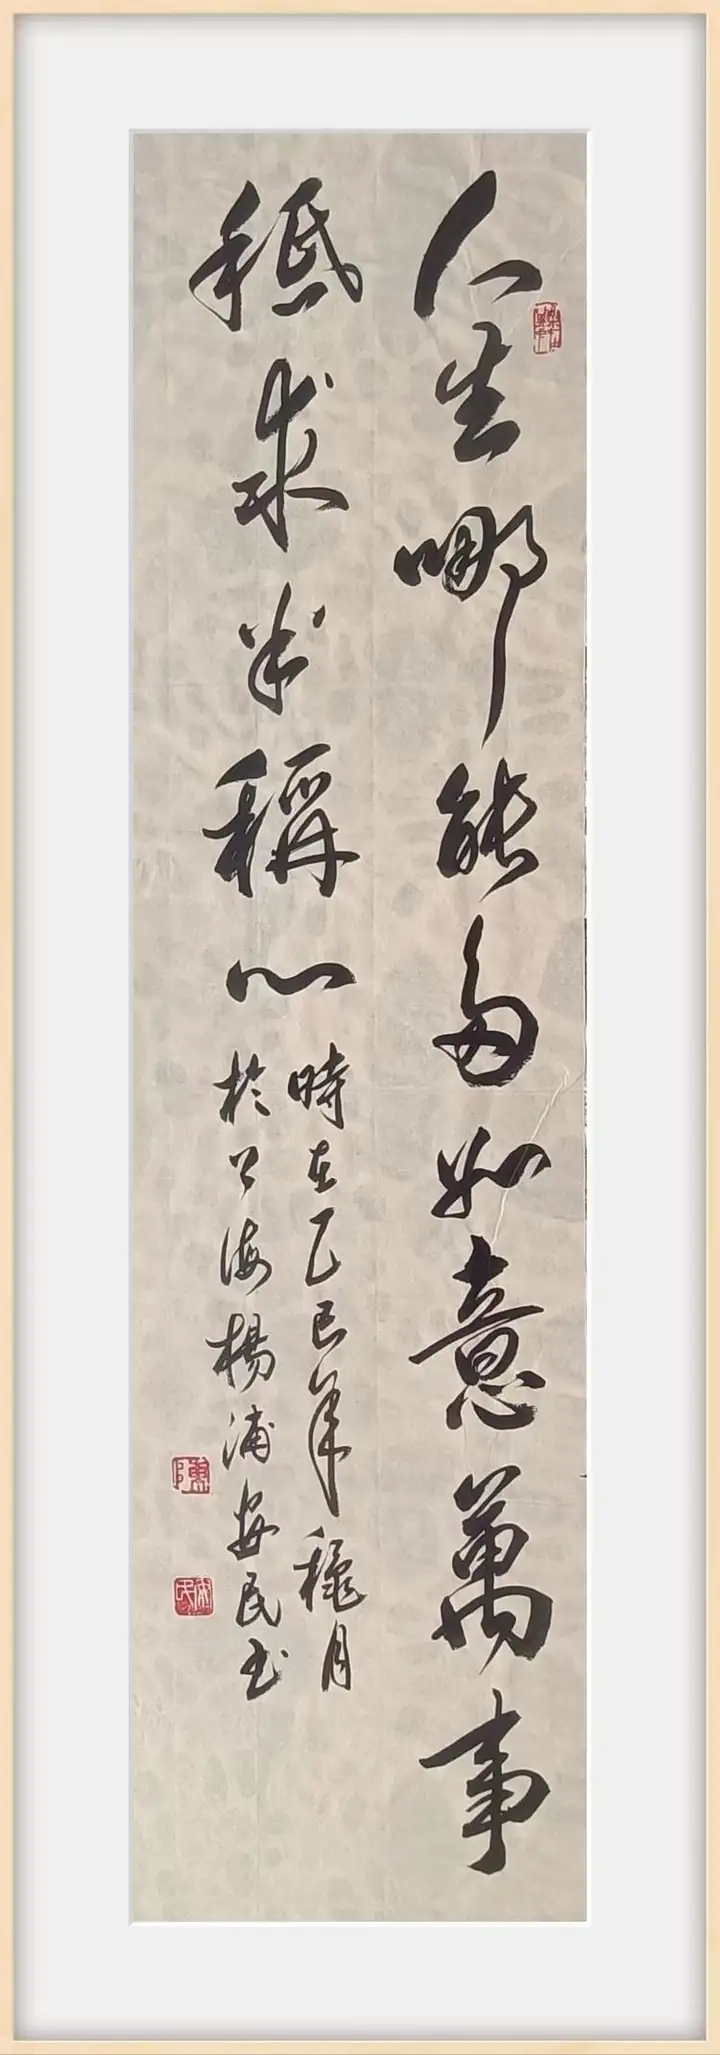 人生哪能多如意萬事
秪求半稱心
時在乙巳年穐月
於上海楊浦安民书